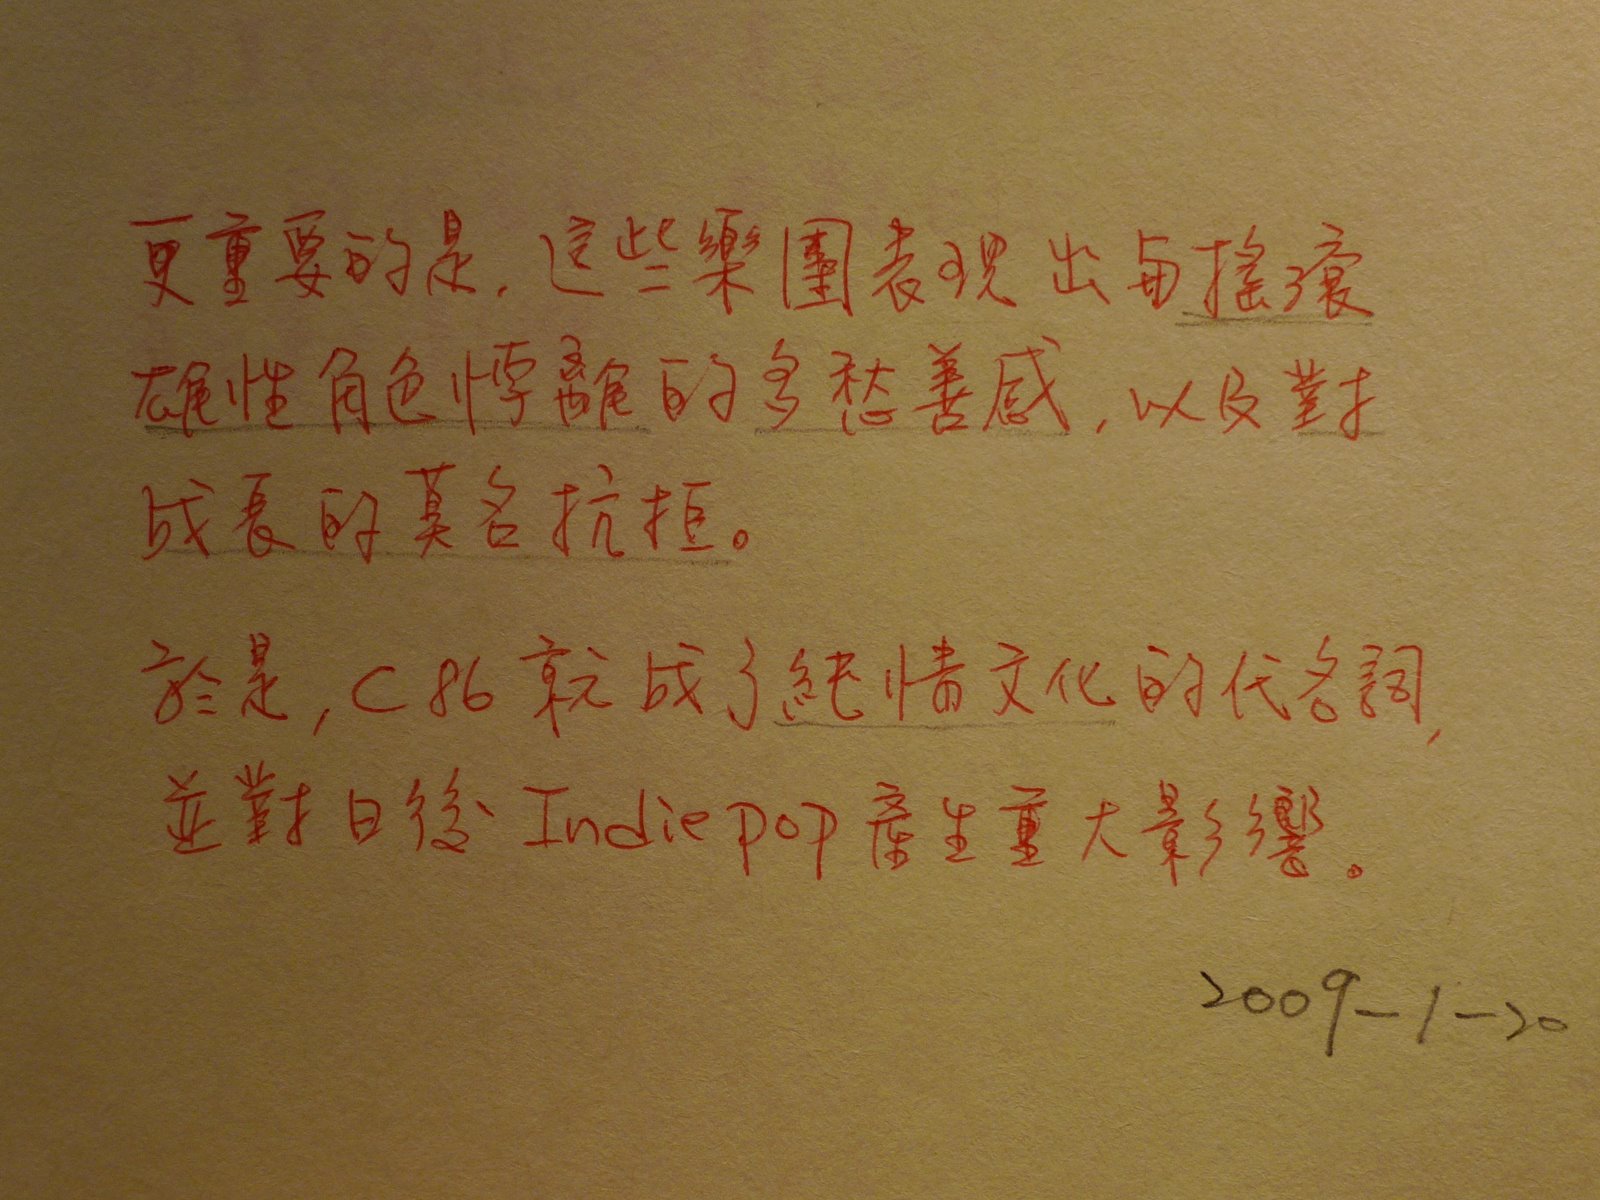 更重要的是，這些樂團表現出与搖滾
雄性角色悖離的多愁善感，以及對
成長的莫名抗拒。
於是，C86就成了純情文化的代名詞，
並對日後Indie pop產生重大影響。
2009-1-20